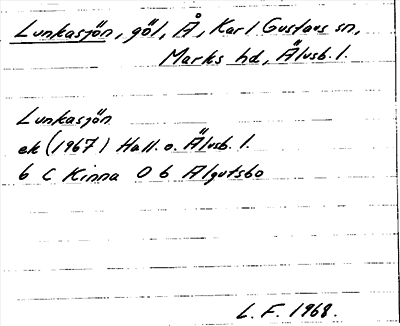 Lunkasjön, göl, Å, Karl Gustavs sn,
Marks hd, Älvsb. l.
Lunkasjön
ek (1967) Hall. o. Älvsb. l.
6 C Kinna 0 b Algutsbo
L. F. 1968.